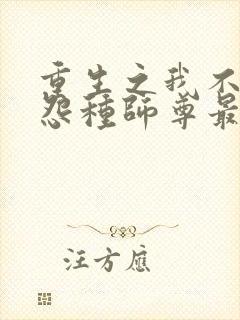 重生之我不
怨種師尊最
汪方應